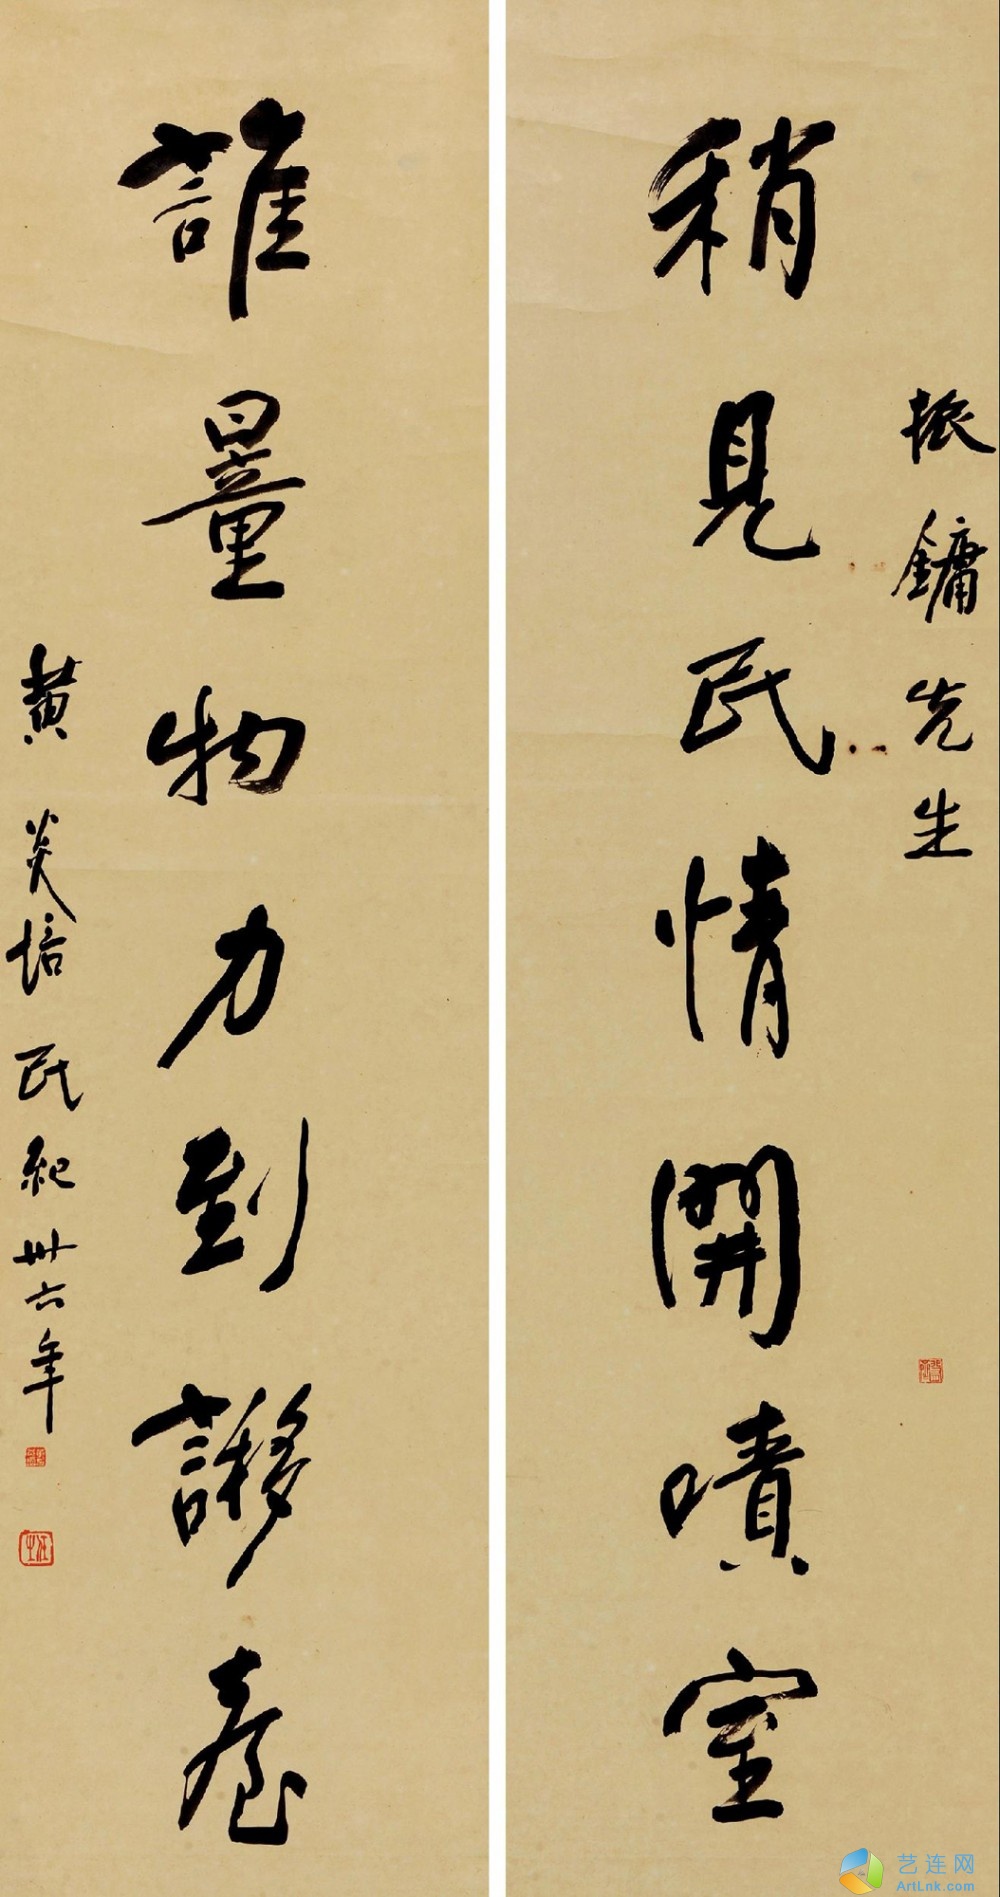 振鏞先生
稍見民情開嘖室
誰量物力到謻臺
黄炎培民紀卅六年
艺连网
ArtLnk.com